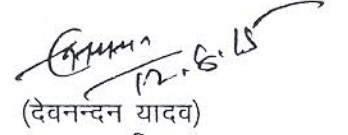 12.6.15
(देवनन्दन यादव)